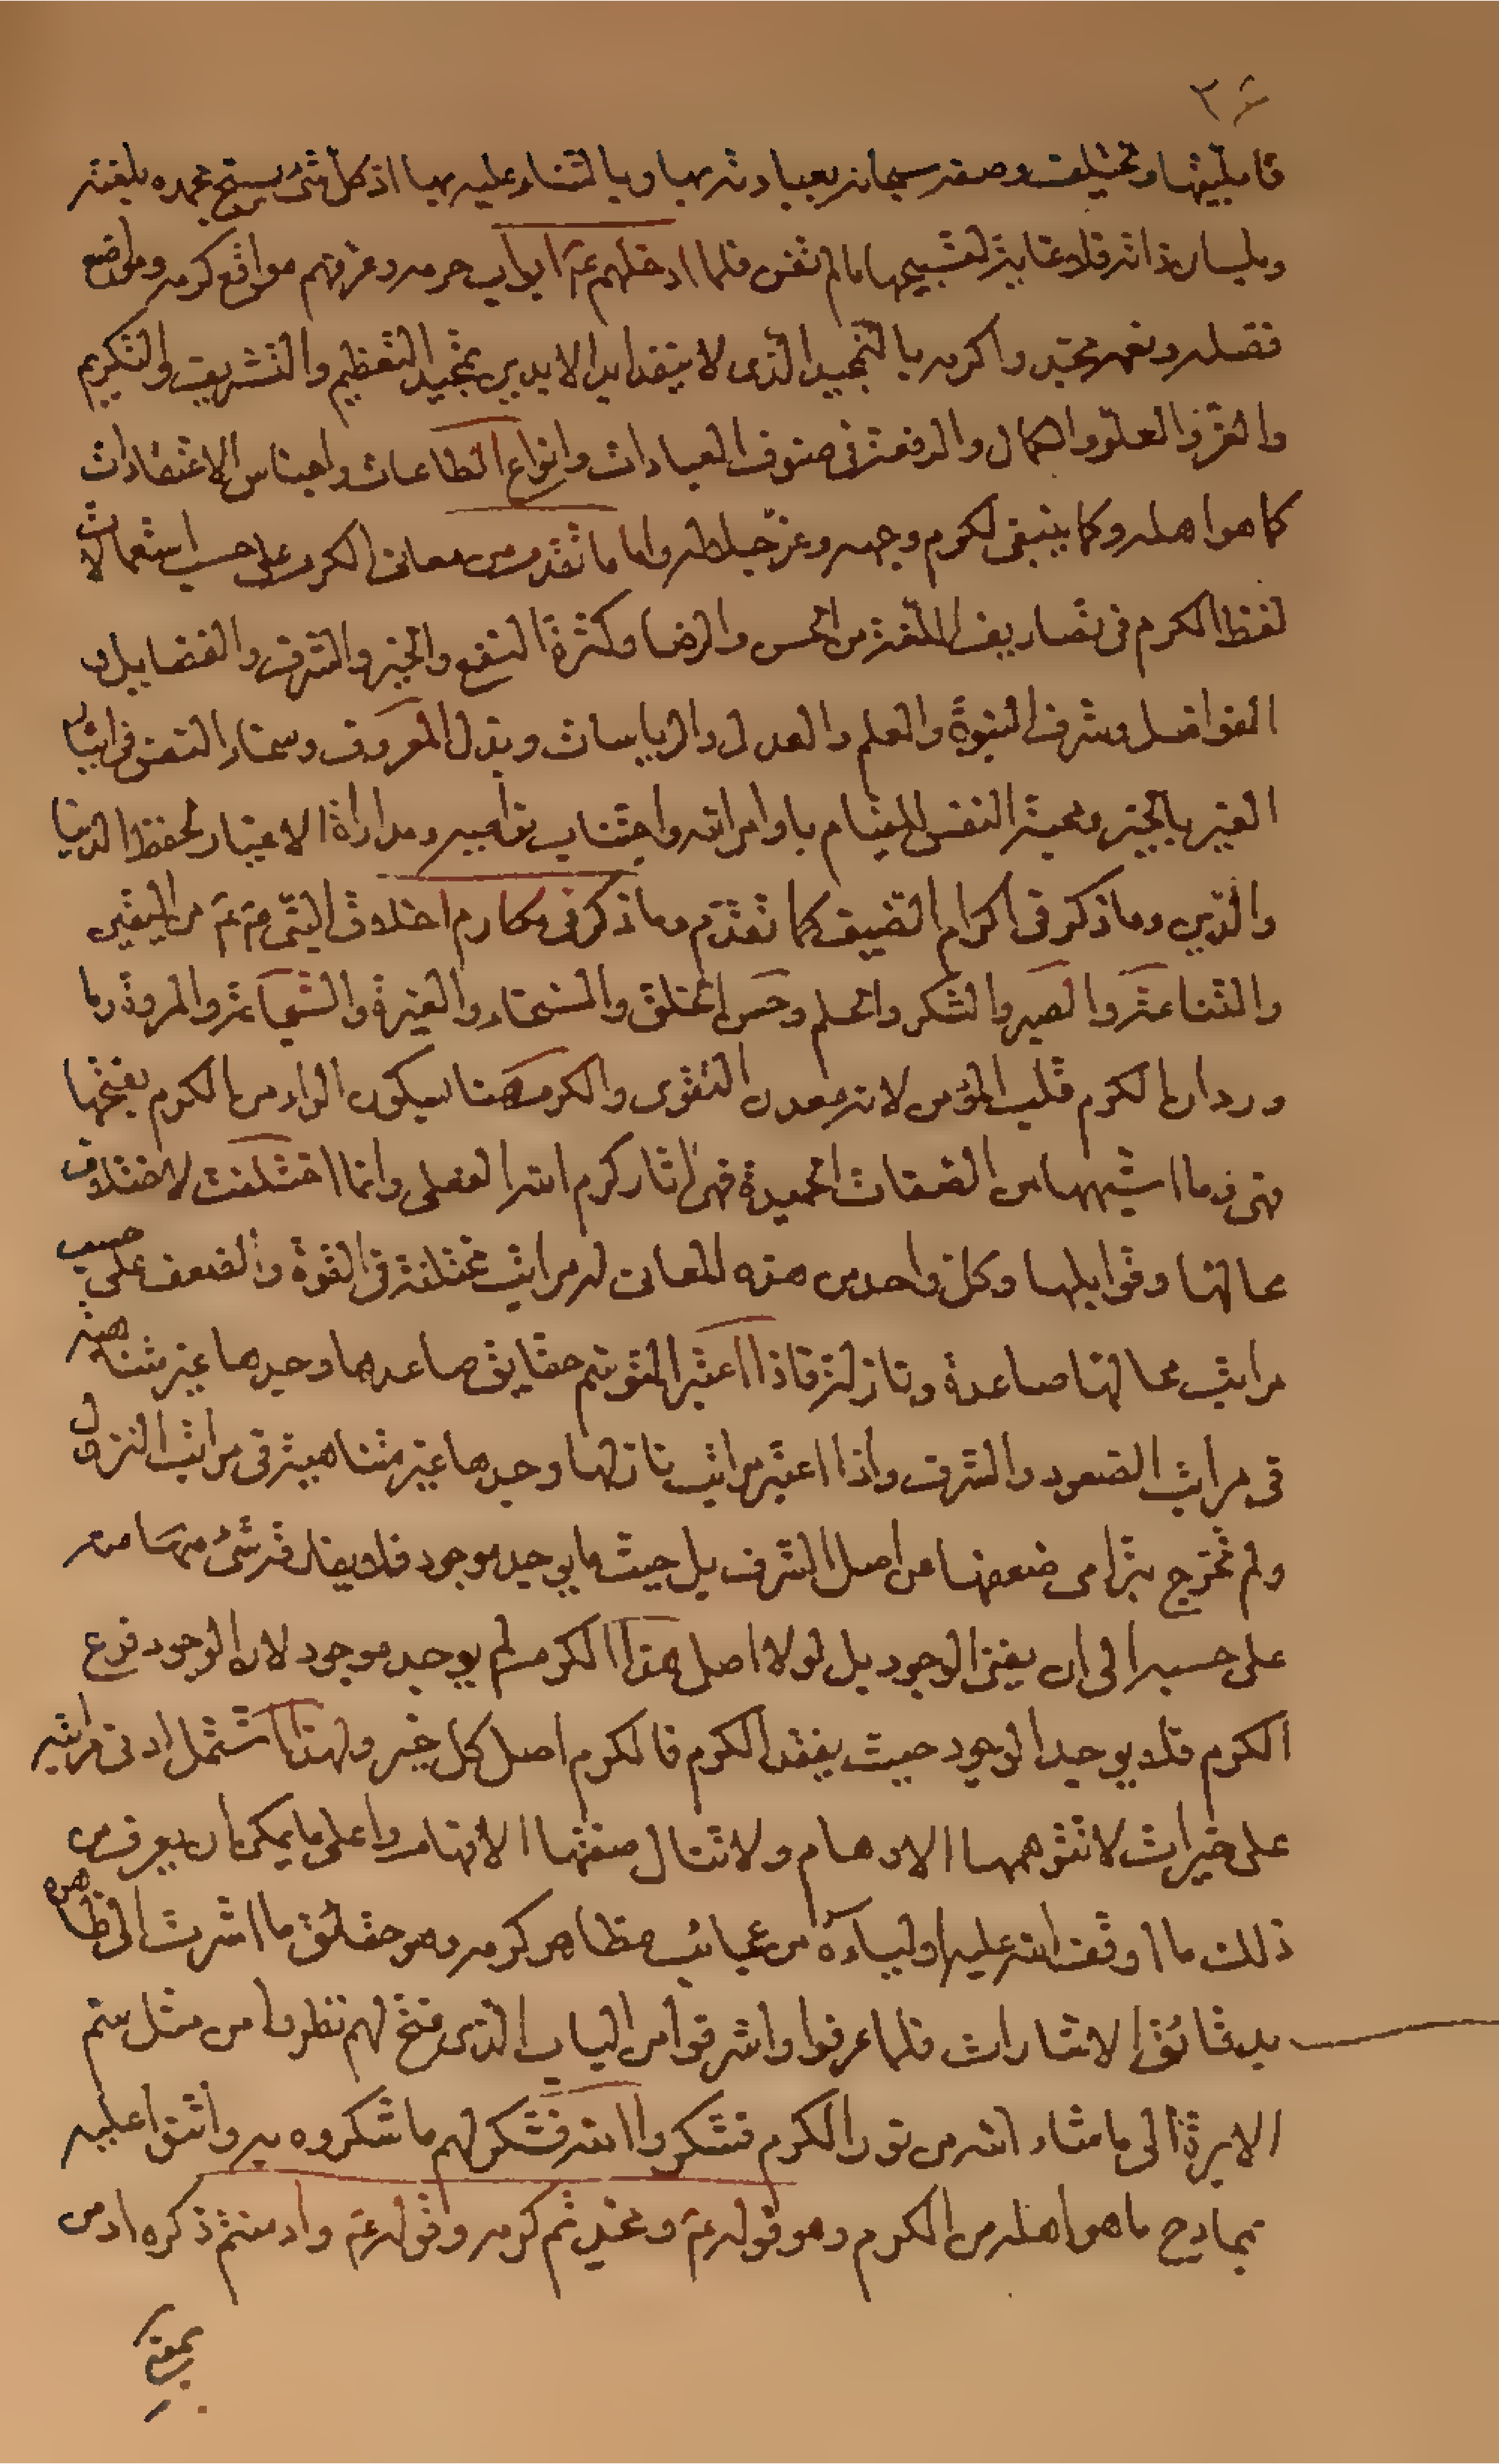 ٢٤
قابليتها وتختلف وصفه سبحانه بعبادته بها وبالثناء عليه بها اذ كل شئ يسبح بحمده بلغته
وبلسان ذاته فلا غاية لتسبيحها ما لم تفن فلما ادخلهم عم ابواب حرمه وعرفهم مواقع كرمه ومواضع
فضله ونعمه مجدوا كرمه بالتمجيد الذى لا ينفد ابد الابدين تمجيد التعظيم والتشريف والتكريم
والعز والعلو والكمال والرفعة فى صنوف العبادات وانواع الطاعات واجناس الاعتقادات
كما هو اهله وكما ينبغى لكرم وجهه وعز جلاله واما ما تقدم من معانى الكرم على حسب استعمالات
لفظ الكرم فى تصاريف اللغة من الحسن والرضا وكثرة النفع والخير والشرف والفضايل و
الفواضل وشرف النبوة والعلم والعدل والرياسات وبذل المعروف وسخاء النفس فى ايثار
الغير بالخير ومحبة النفس للقيام باوامر الله واجتناب نواهيه ومداراة الاغيار لحفظ الدنيا
والدين وما ذكر فى اكرام الضيف كما تقدم وما ذكر فى مكارم اخلاق النبى ص من اليقين
والقناعة والصبر والشكر والحلم وحسن الخلق والسخاء والغيرة والشجاعة والمروة وما
ورد ان الكرم قلب المؤمن لانه معدن التقوى والكرم هنا بسكون الراء من الكرم بفتحها
فهى وما اشبهها من الصفات الحميدة فهى اثار كرم الله الفعلى وانما اختلفت لاختلاف
محالها وقوابلها وكل واحد من هذه المعانى له مراتب مختلفة فى القوة والضعف على حسب
مراتب محالها صاعدة ونازلة فاذا اعتبر المتوسم حقايق صاعدها وجدها غير متناهية
فى مراتب الصعود والشرف واذا اعتبر مراتب نازلها وجدها غير متناهية فى مراتب النزول
ولم تخرج بترامى ضعفها عن اصل الشرف بل حيث ما يوجد موجود فلا يفارقه شئ منها معه
على حسبه الى ان يفنى الوجود بل لولا اصل هذا الكرم لم يوجد موجود لان الوجود فرع
الكرم فلا يوجد الوجود حيث يفقد الكرم فالكرم اصل كل خير ولهذا اشتمل ادنى مراتبه
على خيرات لا تتوهمها الاوهام ولا تنال صفتها الافهام واعلى ما يمكن ان يعرف من
ذلك ما اوقف الله عليه اولياءه من عجائب مظاهر كرمه وهو حقائق ما اشرت الى ظاهره
بدقائق الاشارات فلما عرفوا واشرقوا من الباب الذى فتح لهم نظروا من مثل سم
الابرة الى ما شاء الله من نور الكرم فشكروا الله فشكر لهم ما شكروه به واثنوا عليه
بمادح ما هو اهله من الكرم وهو قوله عم ومجدتم كرمه وقوله عم وادمتم ذكره ادمن
بمعنى